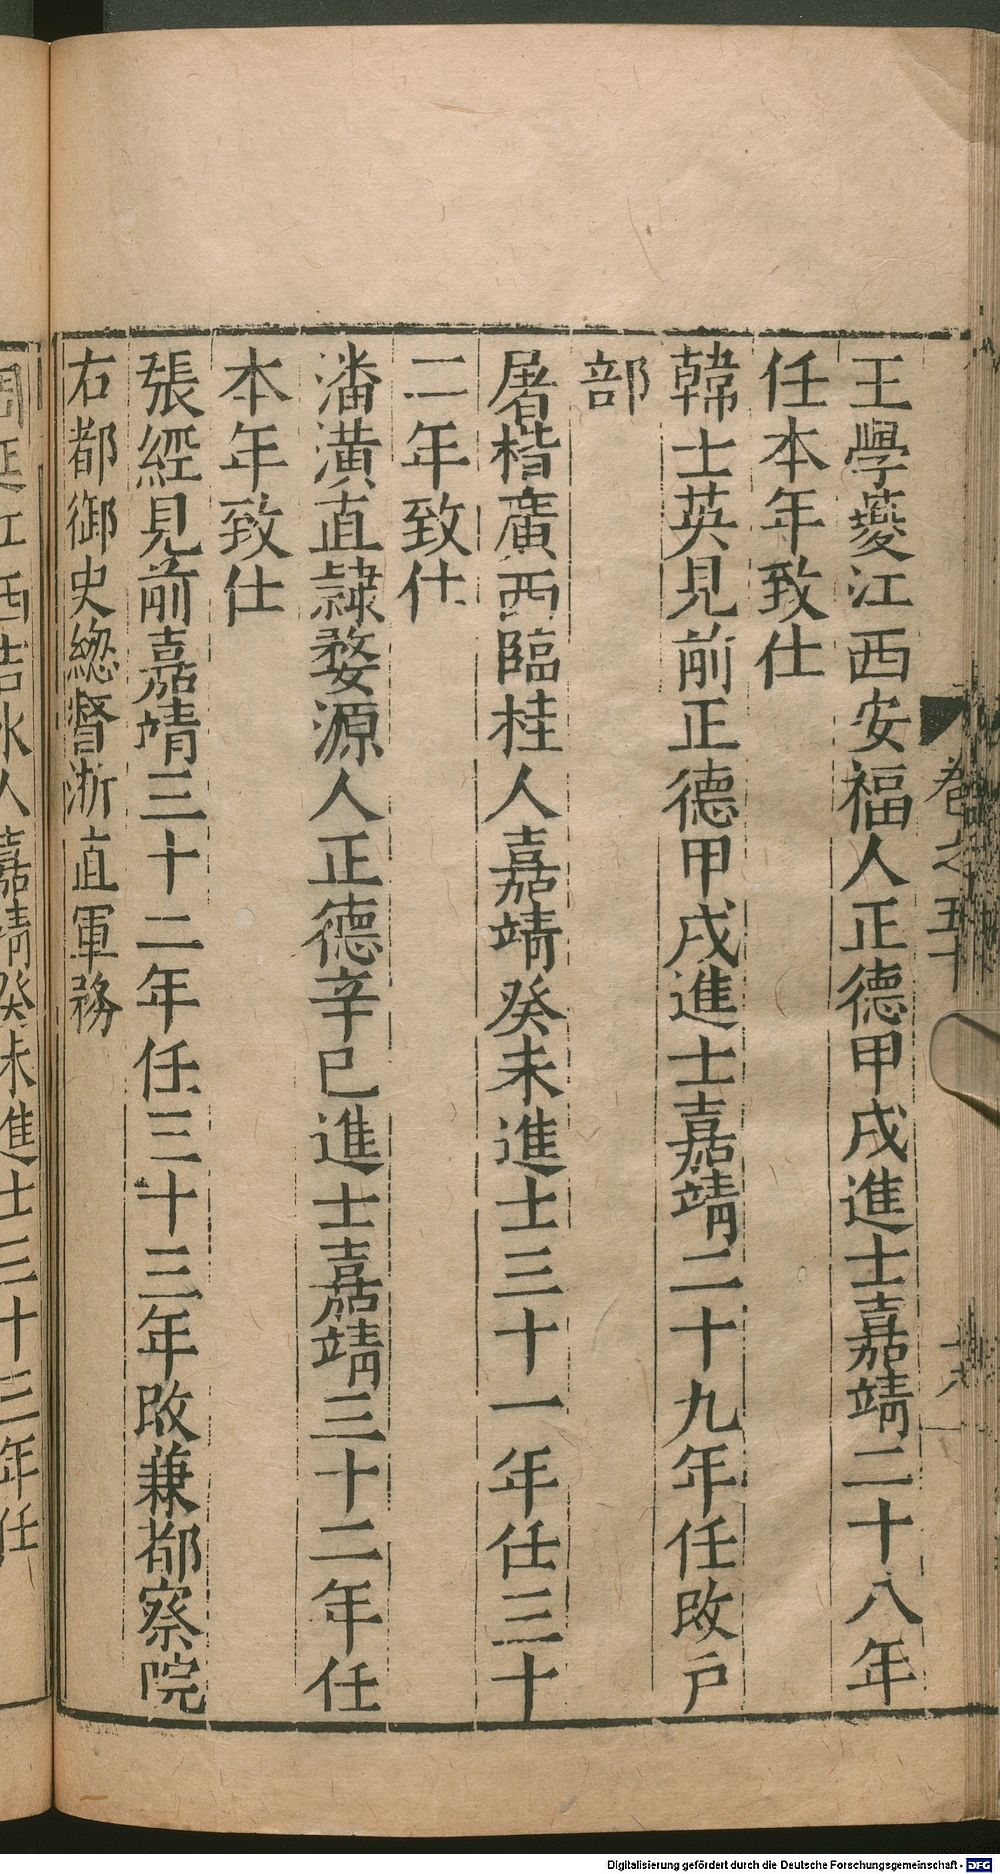 王學夔江西安福人正德甲戌進士嘉靖二十八年
任本年致仕
韓士英見前正德甲戌進士嘉靖二十九年任改戶
部
屠楷廣西臨桂人嘉靖癸未進士三十一年任三十
二年致仕
潘潢直隸婺源人正德辛巳進士嘉靖三十二年任
本年致仕
張經見前嘉靖三十二年任三十三年改兼都察院
右都御史總督浙直軍務
江西吉水人嘉靖癸未進士三十三年任
卷之五十
Digitalisierung gefördert durch die Deutsche Forschungsgemeinschaft - DFG